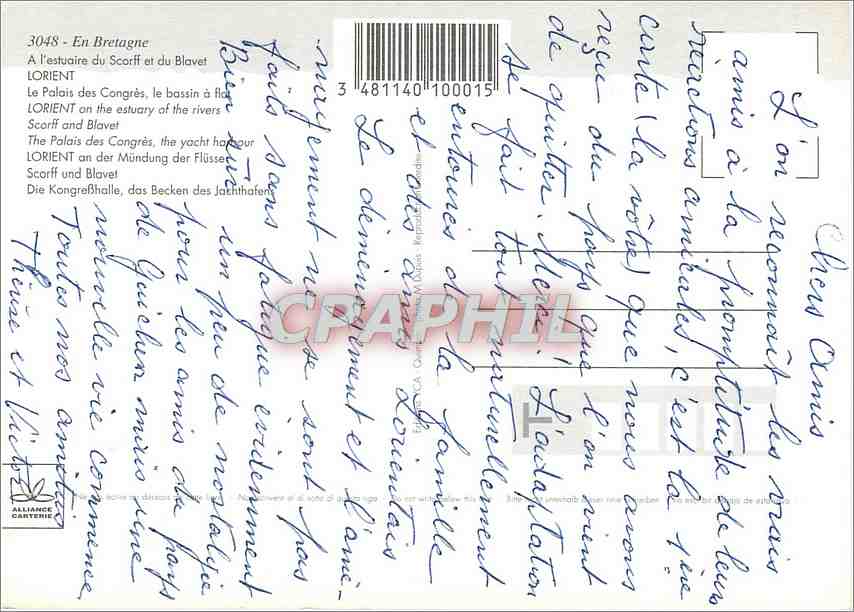 3048 - En Bretagne
A l'estuaire du Scorff et du Blavet
LORIENT
Le Palais des Congrès, le bassin à flot
LORIENT on the estuary of the rivers
Scorff and Blavet
The Palais des Congrès, the yacht harbour
LORIENT an der Mündung der Flüsse
Scorff und Blavet
Die Kongreßhalle, das Becken des Jachthafens
3 481140 100015
Chers Amis
L'on reconnaît les vrais
amis à la promptitude de leurs
réactions amicales, c'est la 1ère
carte (la vôtre) que nous avons
reçu du pays que l'on vient
de quitter. Merci ! L'adaptation
se fait tout naturellement
entourés de la famille
et des amis Lorientais
Le déménagement et l'amé-
nagement ne se sont pas
faits sans fatigue evidemment
Bien sûr un peu de nostalgie
pour les amis du pays
de Guichen mais une
nouvelle vie commence
Toutes nos amitiés
Thérèse et Victor
CPAPHIL
T
ALLIANCE
CARTERIE
Do not write below this line